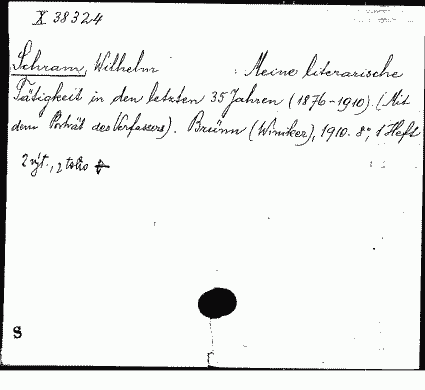 X 38324
Schram, Wilhelm : Meine literarische
Tätigkeit in den letzten 35 Jahren (1876-1910). (Mit
dem Porträt des Verfassers). Brünn (Winiker), 1910. 8°, 1 Heft
2 výt., 2
S